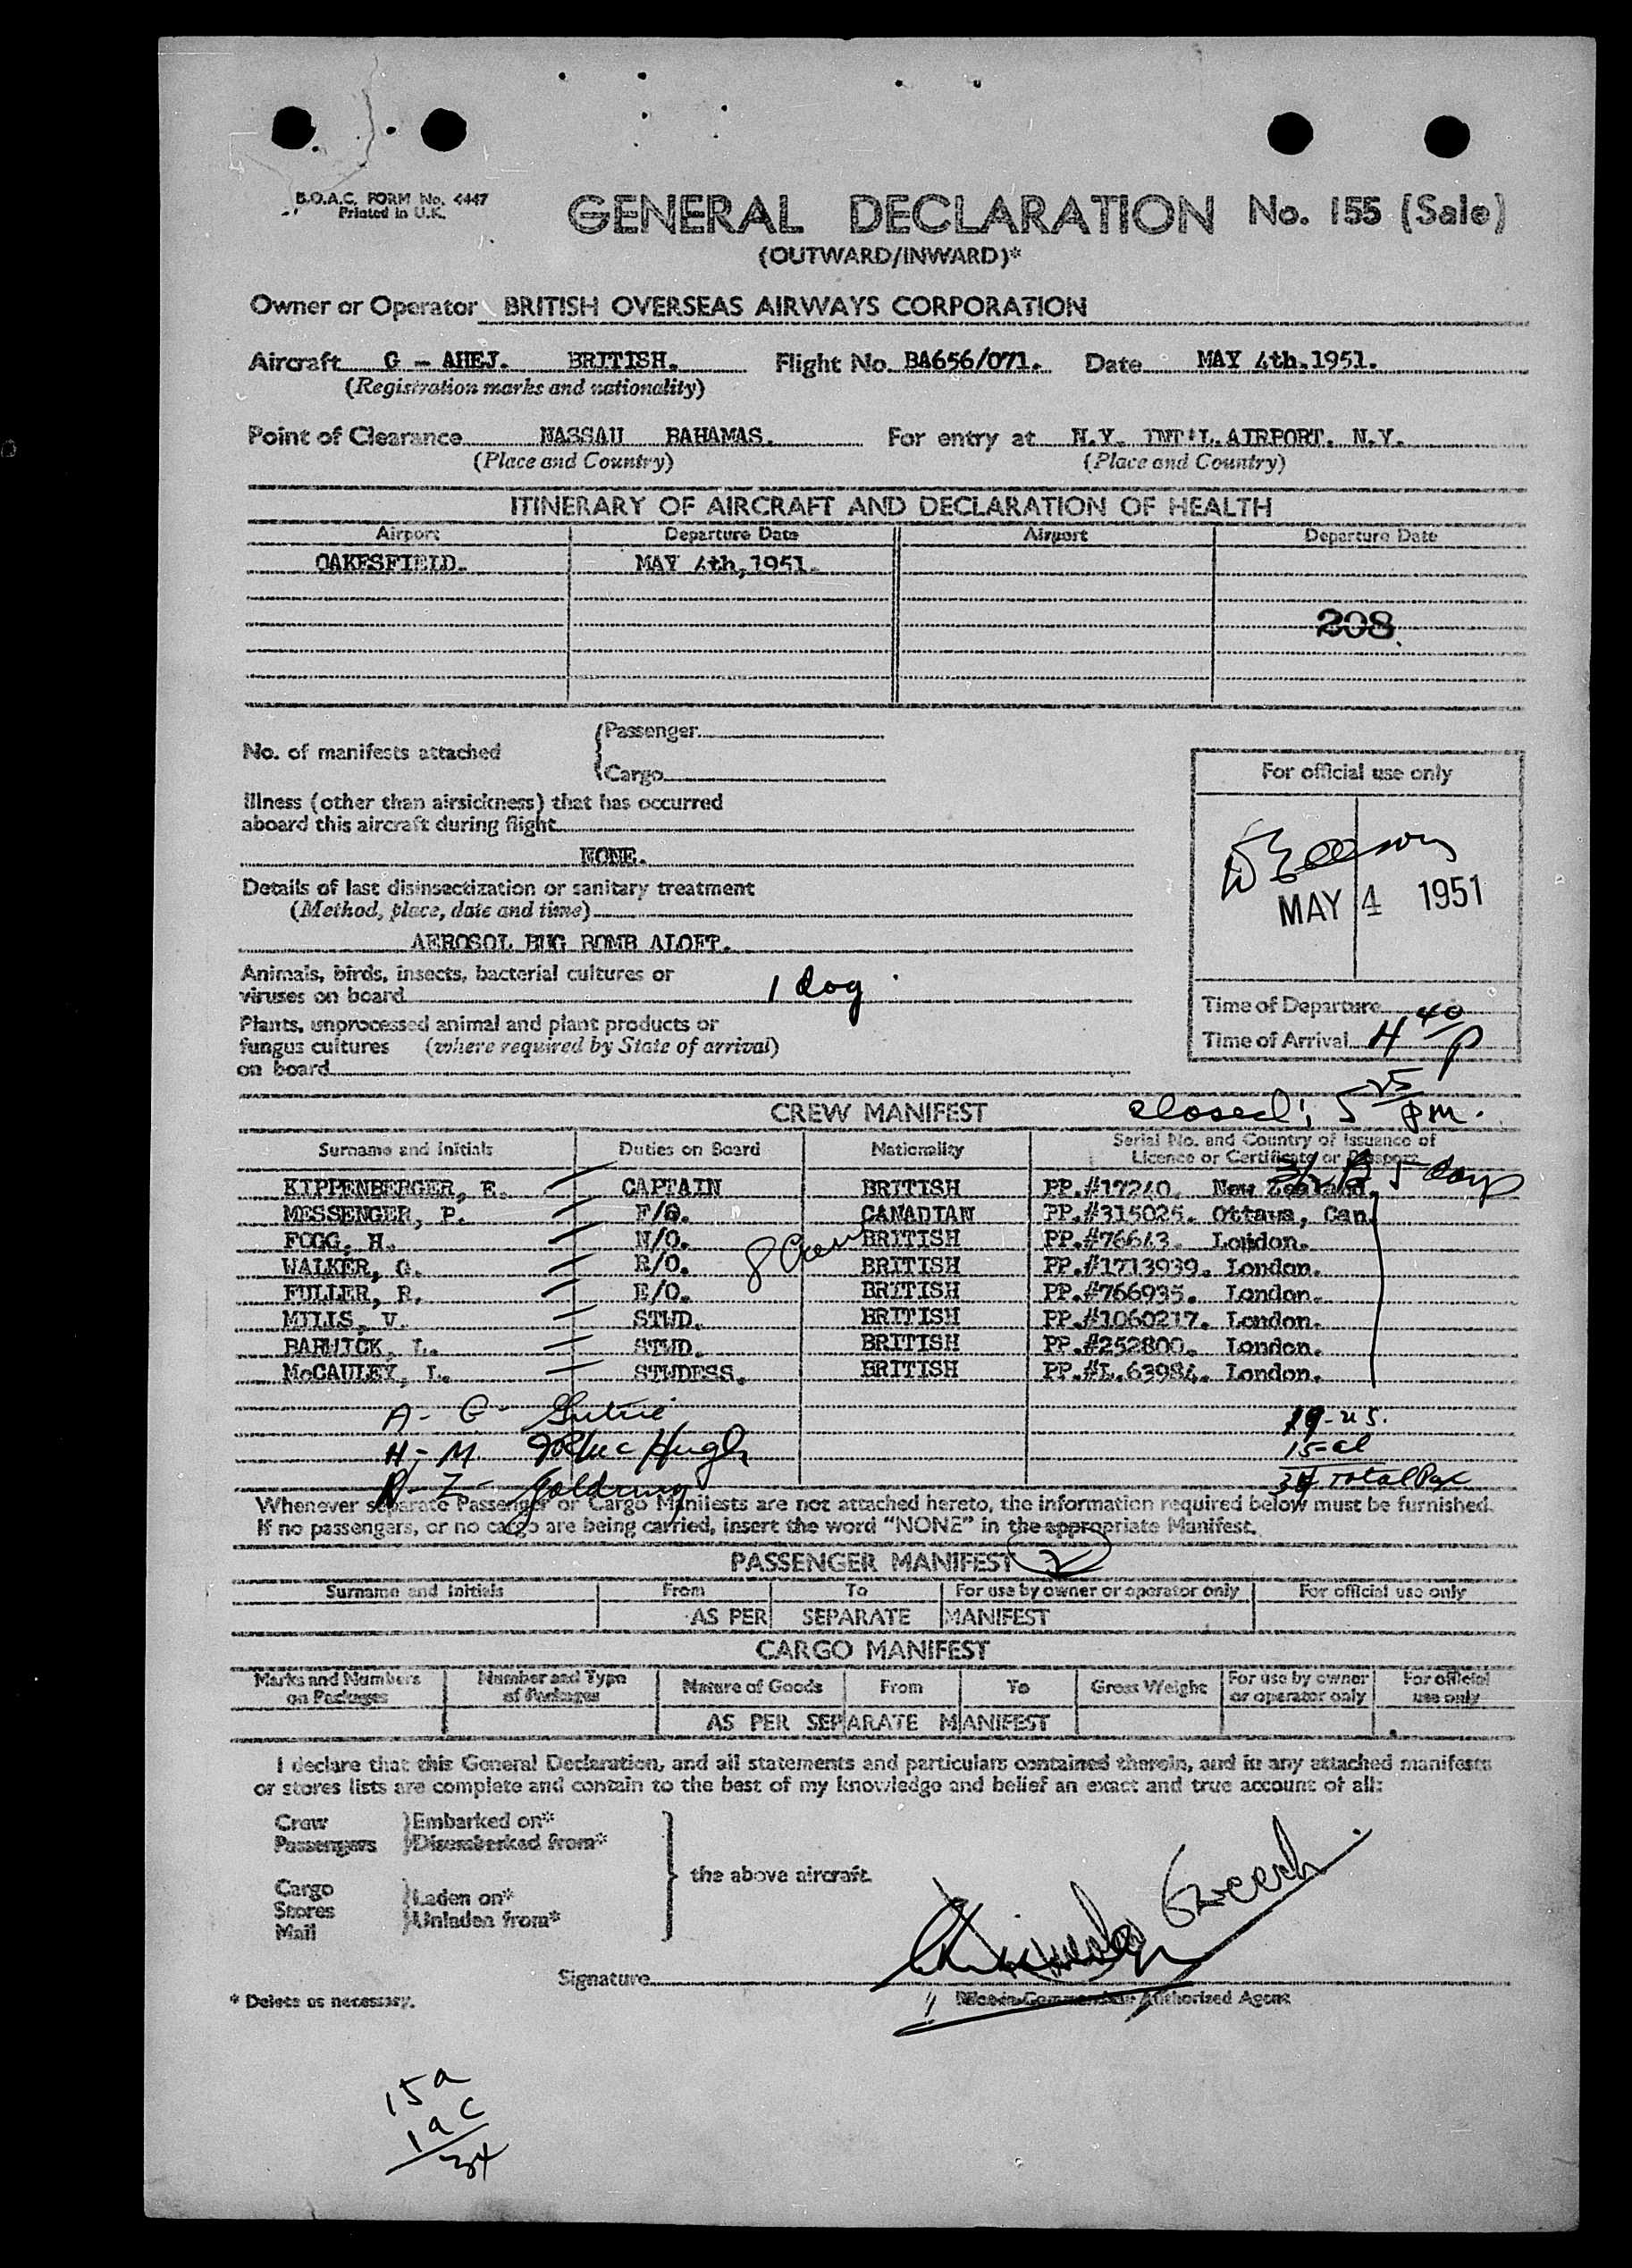 B.O.A.C. FORM No. 4447
Printed in U.K.
GENERAL DECLARATION No. 155 (Sale)
(OUTWARD/INWARD)*
Owner or Operator BRITISH OVERSEAS AIRWAYS CORPORATION
Aircraft G - AHEJ. BRITISH. Flight No. BA656/071. Date MAY 4th.1951.
(Registration marks and nationality)
Point of Clearance NASSAU BAHAMAS. For entry at N.Y. INT'L.AIRPORT. N.Y.
(Place and Country) (Place and Country)
ITINERARY OF AIRCRAFT AND DECLARATION OF HEALTH
Airport Departure Date Airport Departure Date
OAKESFIELD. MAY 4th,1951.
208.
No. of manifests attached
Passenger
Cargo
For official use only
Illness (other than airsickness) that has occurred
aboard this aircraft during flight
NONE.
Details of last disinsectization or sanitary treatment
(Method, place, date and time)
MAY 4 1951
AEROSOL BUG BOMB ALOFT.
Animals, birds, insects, bacterial cultures or
viruses on board 1 dog
Time of Departure
Plants, unprocessed animal and plant products or
fungus cultures (where required by State of arrival)
on board
Time of Arrival 4 40 P
CREW MANIFEST closed; 5 25 pm.
Surname and Initials Duties on Board Nationality Serial No. and Country of Issuance of
Licence or Certificate or Passport
5 days
KIPPENBERGER, E. CAPTAIN BRITISH PP.#17240. New Zealand.
MESSENGER, P. F/O. CANADIAN PP.#315025. Ottawa, Can.
FOGG, H. N/O. BRITISH PP.#76643. London.
8 Crew
WALKER, G. R/O. BRITISH PP.#1713939. London.
FULLER, R. E/O. BRITISH PP.#766935. London.
MILLS, V. STWD. BRITISH PP.#1060217. London.
BARWICK, L. STWD. BRITISH PP.#252800. London.
McCAULEY, I. STWDESS. BRITISH PP.#L.63984. London.
A - G - Guthrie 19-us.
H - M. McHugh 15-al
N - Z - Goldring 34 Total Pax
Whenever separate Passenger or Cargo Manifests are not attached hereto, the information required below must be furnished.
If no passengers, or no cargo are being carried, insert the word "NONE" in the appropriate Manifest.
PASSENGER MANIFEST 2
Surname and Initials From To For use by owner or operator only For official use only
AS PER SEPARATE MANIFEST
CARGO MANIFEST
Marks and Numbers on Packages Number and Type of Packages Nature of Goods From To Gross Weight For use by owner or operator only For official use only
AS PER SEPARATE MANIFEST
I declare that this General Declaration, and all statements and particulars contained therein, and in any attached manifests
or stores lists are complete and contain to the best of my knowledge and belief an exact and true account of all:
Crew Embarked on*
Passengers Disembarked from*
the above aircraft.
Cargo Laden on*
Stores Unladen from*
Mail
Signature
* Delete as necessary. Pilot-in-Command or Authorized Agent
15 a
19 c
34